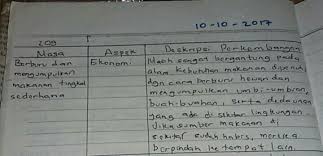 10-10-2017
209
Masa Aspek Deskripsi Perkembangan
Berburu dan Ekonomi Masih sangat bergantung pada
mengumpulkan alam. Kebutuhan makanan dipenuhi
makanan tingkat dgn cara berburu hewan dan
sederhana mengumpulkan umbi-umbian,
buah-buahan, serta dedaunan
yang ada di sekitar lingkungan.
Jika sumber makanan di
sekitar sudah habis, mereka
berpindah ke tempat lain.